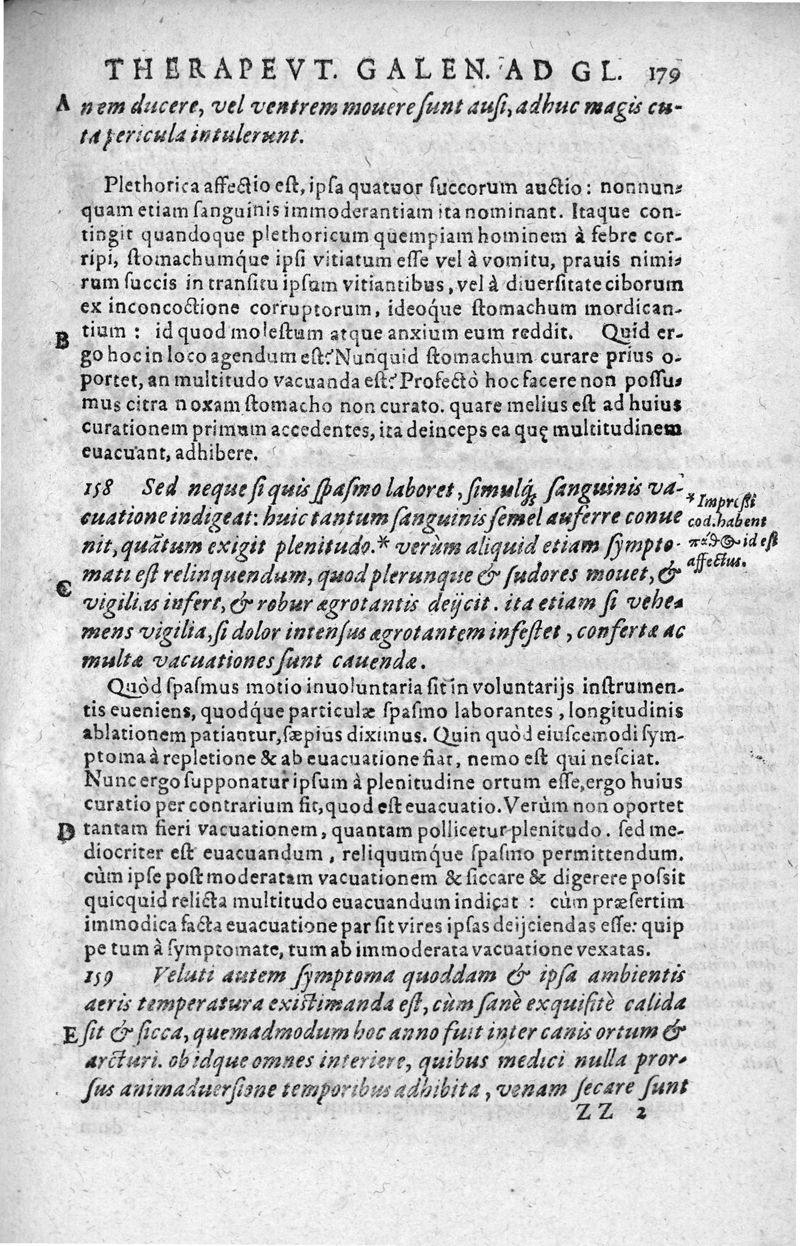 THERAPEVT. GALEN. AD GL. 179
A nem ducere, vel ventrem mouere sunt ausi, adhuc magis cu-
ta pericula intulerunt.
Plethorica affectio est, ipsa quatuor succorum auctio: nonnun-
quam etiam sanguinis immoderantiam ita nominant. Itaque con-
tingit quandoque plethoricum quempiam hominem à febre cor-
ripi, stomachumq́ue ipsi vitiatum esse vel à vomitu, prauis nimi-
rum succis in transitu ipsum vitiantibus, vel à diuersitate ciborum
ex inconcoctione corruptorum, ideoq́ue stomachum mordican-
B tium: id quod molestum atque anxium eum reddit. Quid er-
go hoc in loco agendum est? Nunquid stomachum curare prius o-
portet, an multitudo vacuanda est? Profectò hoc facere non possu-
mus citra noxam stomacho non curato. quare melius est ad huius
curationem primum accedentes, ita deinceps ea quę multitudinem
euacuant, adhibere.
158 Sed neque si quis spasmo laboret, simulq́; sanguinis va-
cuatione indigeat: huic tantum sanguinis semel auferre conue
nit, quātum exigit plenitudo.* verùm aliquid etiam sympto-
C mati est relinquendum, quod plerunque & sudores mouet, &
vigilias infert, & robur ægrotantis deijcit. ita etiam si vehe-
mens vigilia, si dolor intensus ægrotantem infestet, confertæ ac
multæ vacuationes sunt cauendæ.
*Impressi
cod. habent
πάθος id est
affectus.
Quòd spasmus motio inuoluntaria sit in voluntarijs instrumen-
tis eueniens, quodq́ue particulæ spasmo laborantes, longitudinis
ablationem patiantur, sæpius diximus. Quin quòd eiuscemodi sym-
ptoma à repletione & ab euacuatione fiat, nemo est qui nesciat.
Nunc ergo supponatur ipsum à plenitudine ortum esse, ergo huius
curatio per contrarium fit, quod est euacuatio. Verùm non oportet
D tantam fieri vacuationem, quantam pollicetur plenitudo. sed me-
diocriter est euacuandum, reliquumq́ue spasmo permittendum.
cùm ipse post moderatam vacuationem & siccare & digerere possit
quicquid relicta multitudo euacuandum indicat: cùm præsertim
immodica facta euacuatione par sit vires ipsas deijciendas esse: quip
pe tum à symptomate, tum ab immoderata vacuatione vexatas.
159 Veluti autem symptoma quoddam & ipsa ambientis
aeris temperatura existimanda est, cùm sanè exquisitè calida
E sit & sicca, quemadmodum hoc anno fuit inter canis ortum &
arcturi. ob idque omnes interiere, quibus medici nulla pror-
sus animaduersione temporibus adhibita, venam secare sunt
ZZ 2